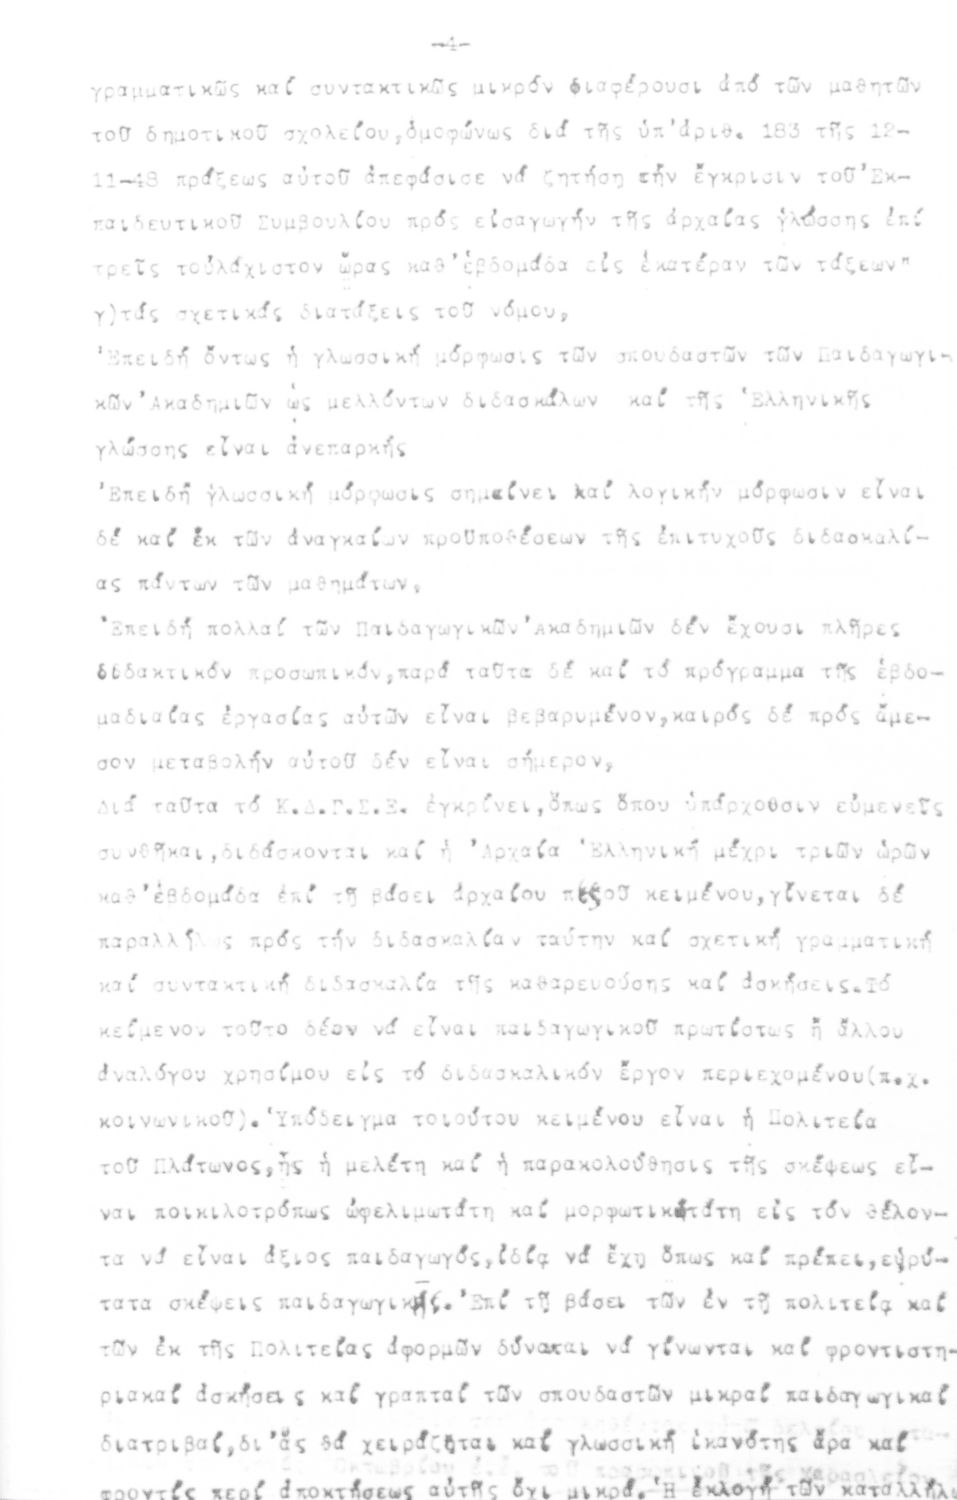 -4-
γραμματικῶς καί συντακτικῶς μικρόν διαφέρουσι ἀπό τῶν μαθητῶν
τοῦ δημοτικοῦ σχολείου,ὁμοφώνως διά τῆς ὑπ'ἀριθ. 183 τῆς 12-
11-48 πράξεως αὐτοῦ ἀπεφάσισε νά ζητήση τήν ἔγκρισιν τοῦ Ἐκ-
παιδευτικοῦ Συμβουλίου πρός εἰσαγωγήν τῆς ἀρχαίας γλώσσης ἐπί
τρεῖς τοὐλάχιστον ὥρας καθ'ἑβδομάδα εἰς ἑκατέραν τῶν τάξεων"
γ)τάς σχετικάς διατάξεις τοῦ νόμου,
Ἐπειδή ὄντως ἡ γλωσσική μόρφωσις τῶν σπουδαστῶν τῶν Παιδαγωγι-
κῶν Ἀκαδημιῶν ὡς μελλόντων διδασκάλων καί τῆς Ἑλληνικῆς
γλώσσης εἶναι ἀνεπαρκής
Ἐπειδή γλωσσική μόρφωσις σημαίνει καί λογικήν μόρφωσιν εἶναι
δέ καί ἐκ τῶν ἀναγκαίων προϋποθέσεων τῆς ἐπιτυχοῦς διδασκαλί-
ας πάντων τῶν μαθημάτων,
Ἐπειδή πολλαί τῶν Παιδαγωγικῶν Ἀκαδημιῶν δέν ἔχουσι πλῆρες
διδακτικόν προσωπικόν,παρά ταῦτα δέ καί τό πρόγραμμα τῆς ἑβδο-
μαδιαίας ἐργασίας αὐτῶν εἶναι βεβαρυμένον,καιρός δέ πρός ἄμε-
σον μεταβολήν αὐτοῦ δέν εἶναι σήμερον,
Διά ταῦτα τό Κ.Δ.Γ.Σ.Ε. ἐγκρίνει,ὅπως ὅπου ὑπάρχοθσιν εὐμενεῖς
συνθῆκαι,διδάσκονται καί ἡ Ἀρχαία Ἑλληνική μέχρι τριῶν ὡρῶν
καθ'ἑβδομάδα ἐπί τῇ βάσει ἀρχαίου πεζοῦ κειμένου,γίνεται δέ
παραλλήλως πρός τήν διδασκαλίαν ταύτην καί σχετική γραμματική
καί συντακτική διδασκαλία τῆς καθαρευούσης καί ἀσκήσεις.Τό
κείμενον τοῦτο δέον νά εἶναι παιδαγωγικοῦ πρωτίστως ἤ ἄλλου
ἀναλόγου χρησίμου εἰς τό διδασκαλικόν ἔργον περιεχομένου(π.χ.
κοινωνικοῦ).Ὑπόδειγμα τοιούτου κειμένου εἶναι ἡ Πολιτεία
τοῦ Πλάτωνος,ἧς ἡ μελέτη καί ἡ παρακολούθησις τῆς σκέψεως εἶ-
ναι ποικιλοτρόπως ὠφελιμωτάτη καί μορφωτικωτάτη εἰς τόν θέλον-
τα νά εἶναι ἄξιος παιδαγωγός,ἰδίᾳ νά ἔχη ὅπως καί πρέπει,εὐρύ-
τατα σκέψεις παιδαγωγικῆς.Ἐπί τῇ βάσει τῶν ἐν τῇ πολιτείᾳ καί
τῶν ἐκ τῆς Πολιτείας ἀφορμῶν δύναται νά γίνωνται καί φροντιστη-
ριακαί ἀσκήσεις καί γραπταί τῶν σπουδαστῶν μικραί παιδαγωγικαί
διατριβαί,δι'ἅς θά χειράζηται καί γλωσσική ἱκανότης ἄρα καί
φροντίς περί ἀποκτήσεως αὐτῆς ὄχι μικρά. Ἡ ἐκλογή τῶν καταλλήλω